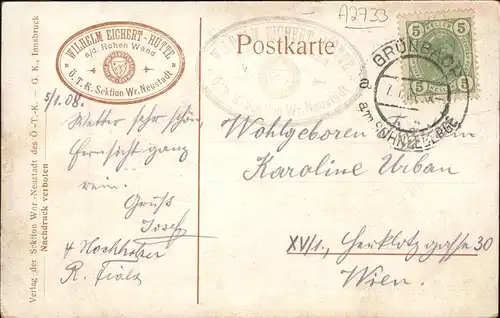 A2733
WILHELM EICHERT-HÜTTE
a/d. Hohen Wand
Ö.T.K. Sektion Wr. Neustadt
WILHELM EICHERT-HÜTTE
Ö.T.K. Sektion Wr. Neustadt
Postkarte
5
5
GRÜNBACH
a
am SCHNEEBERGE
5/1.08.
Wetter sehr schön
Fernsicht ganz
rein.
Gruß
Josef
R. Fiala
Wohlgeboren
Karoline Urban
XV/1., Herklotzgasse 30
Wien.
Verlag der Sektion Wr.-Neustadt des Ö.-T.-K. — G. K., Innsbruck
Nachdruck verboten